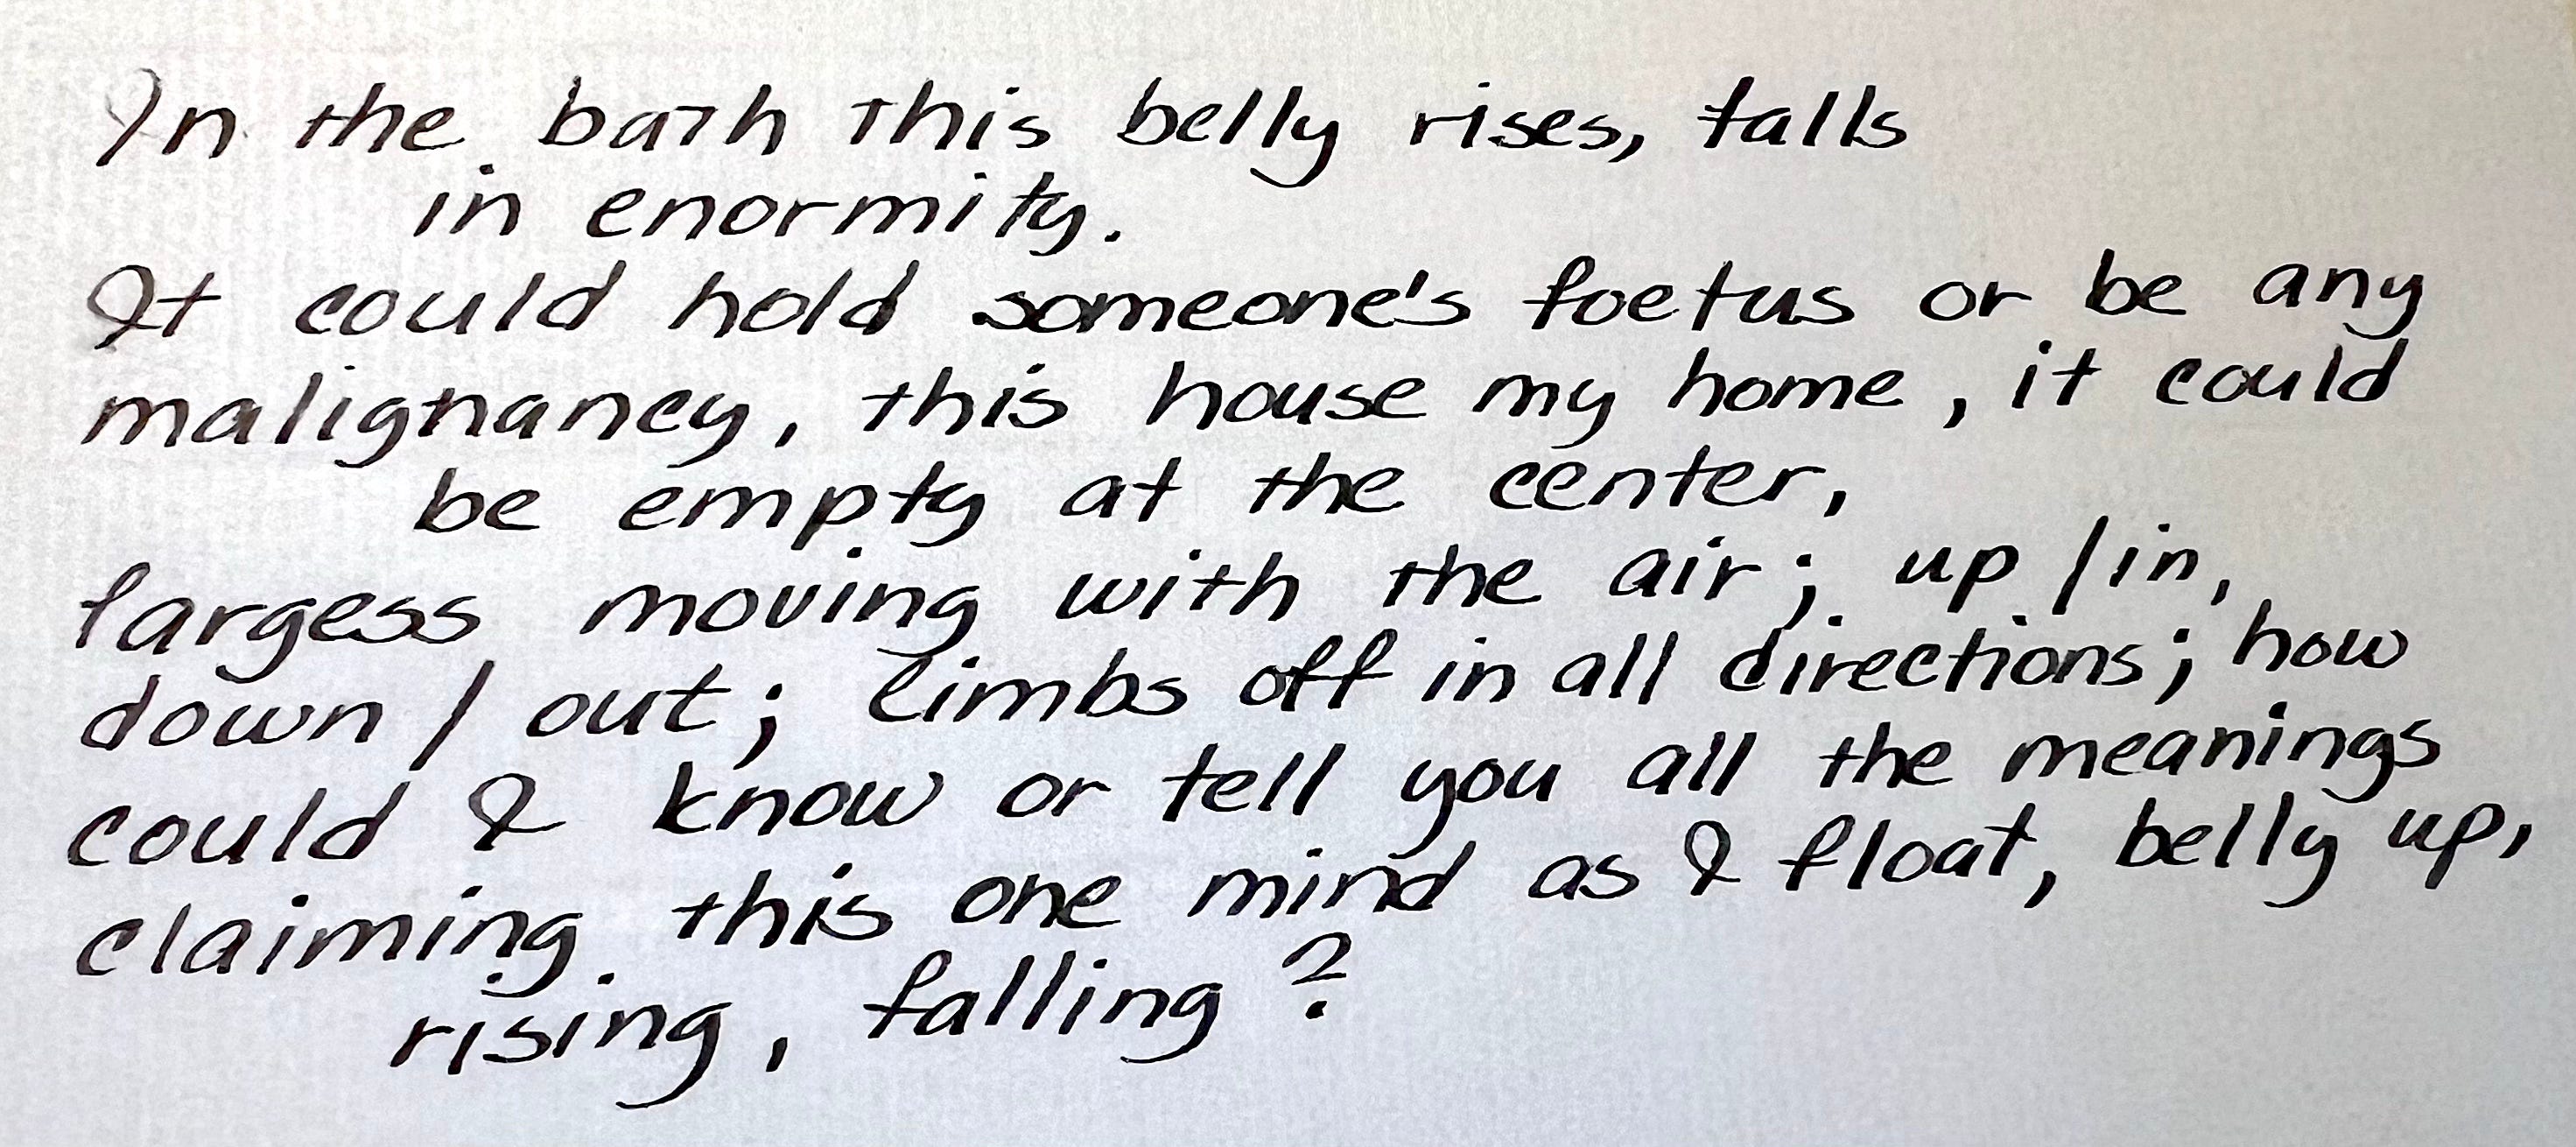 In the bath this belly rises, falls
in enormity.
It could hold someone's foetus or be any
malignancy, this house my home, it could
be empty at the center,
largess moving with the air; up / in,
down / out; limbs off in all directions; how
could I know or tell you all the meanings
claiming this one mind as I float, belly up,
rising, falling?